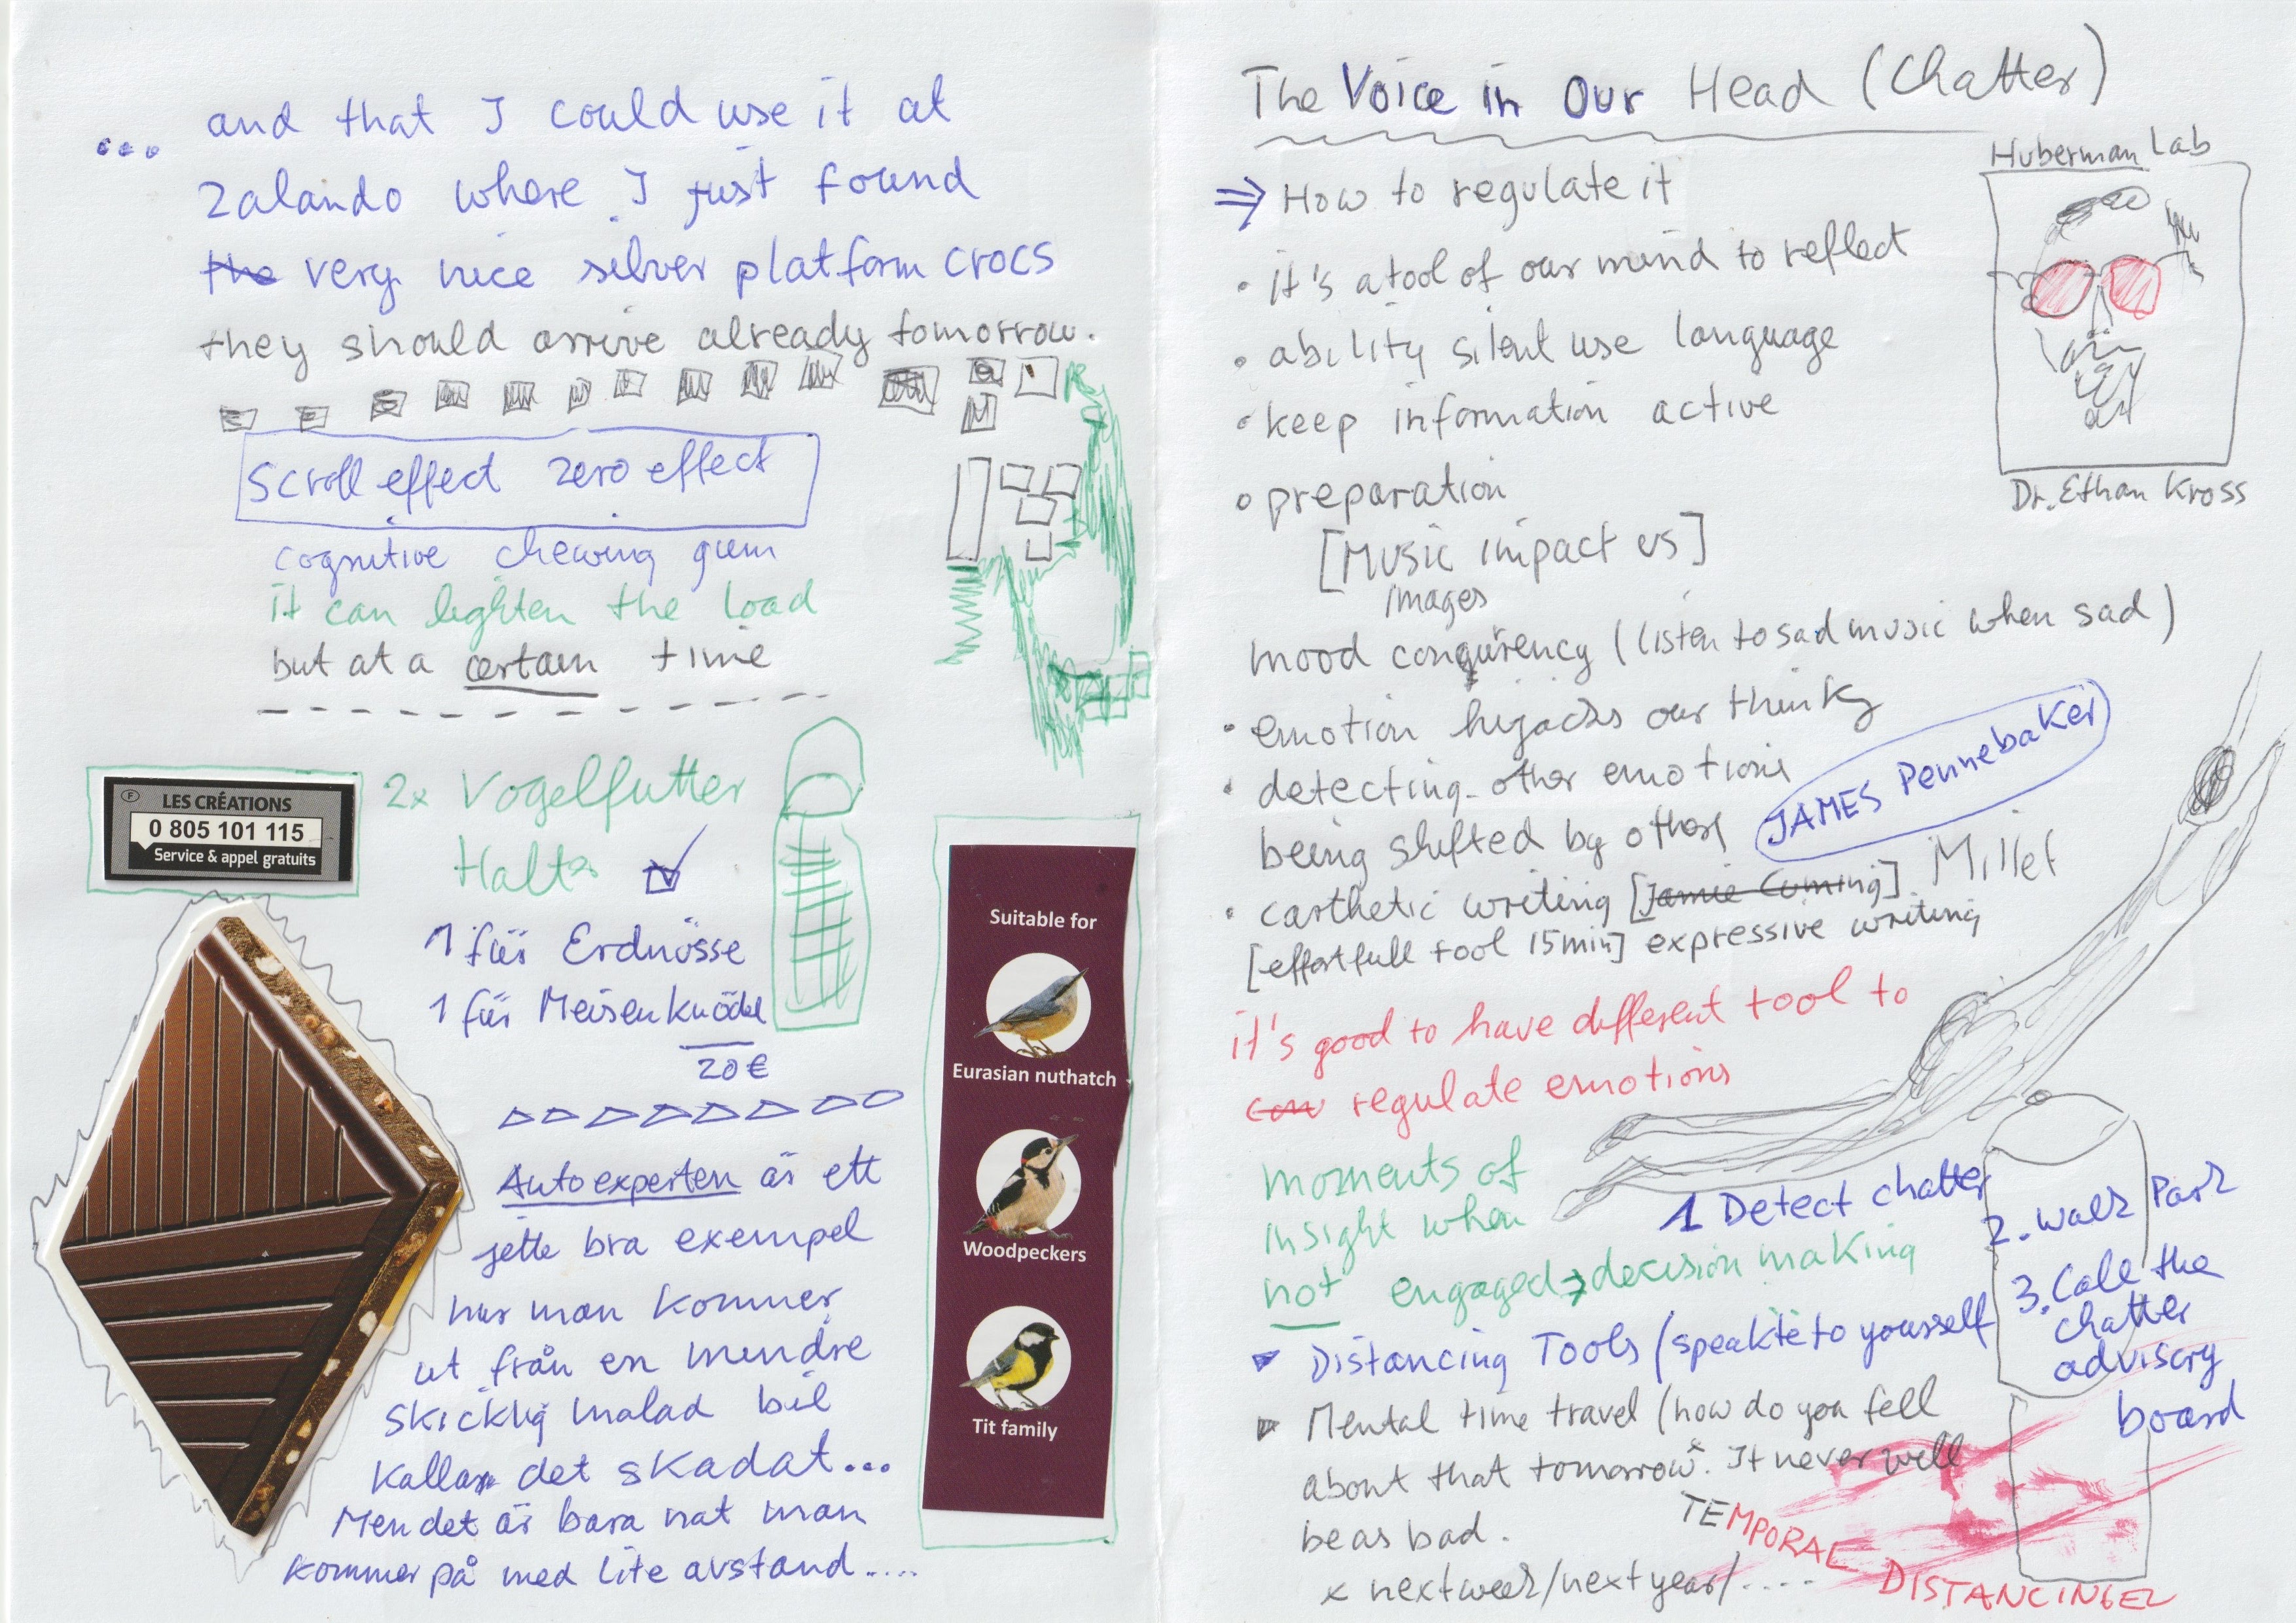 ... and that I could use it at
Zalando where I just found
the very nice silver platform crocs
they should arrive already tomorrow.
Scroll effect zero effect
cognitive chewing gum
it can lighten the load
but at a certain time
F LES CRÉATIONS
0 805 101 115
Service & appel gratuits
2x Vogelfutter
1 für Erdnüsse
1 für Meisenknödel
20€
Suitable for
Eurasian nuthatch
Woodpeckers
Tit family
Autoexperten är ett
jette bra exempel
hur man kommer
ut från en mindre
skicklig målad bil
kallar det skadat...
Men det är bara nåt man
kommer på med lite avstånd....
The Voice in Our Head (Chatter)
Huberman Lab
Dr. Ethan Kross
⇒ How to regulate it
• it's a tool of our mind to reflect
• ability silent use language
• keep information active
• preparation
[Music impact us]
images
mood (listen to sad music when sad)
• emotion hijacks our thinky
• detecting other emotions
being shifted by others
JAMES Pennebaker
• carthetic writing [Jamie Cuming] Millet
[effortfull tool 15min] expressive writing
it's good to have different tool to
regulate emotions
moments of
insight when
not engaged → decision making
1 Detect chatter
2. Walk Park
3. Call the
chatter
advisory
board
Distancing Tools (speak to yourself
Mental time travel (how do you fell
about that tomorrow. It never will
be as bad.
x next week/next year/....
TEMPORAL